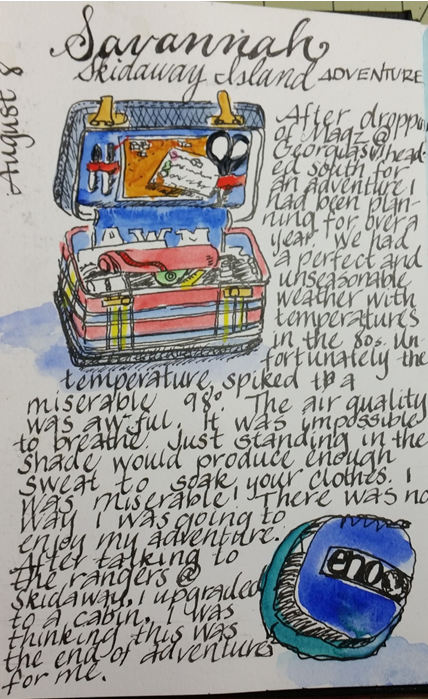 Savannah
Skidaway Island ADVENTURE
August 8
After droppin
of Magz @
Georgias I head-
ed south for
an adventure I
had been plan-
ning for over a
year. we had
a perfect and
unseasonable
weather with
temperatures
in the 80s. Un-
fortunately the
temperature spiked to a
miserable 98°. The air quality
was awful. It was impossible
to breathe. Just standing in the
shade would produce enough
sweat to soak your clothes. I
was miserable! There was no
way I was going to
enjoy my adventure.
After talking to
the rangers @
Skidaway, I upgraded
to a cabin. I was
thinking this was
the end of adventures
for me.
eno